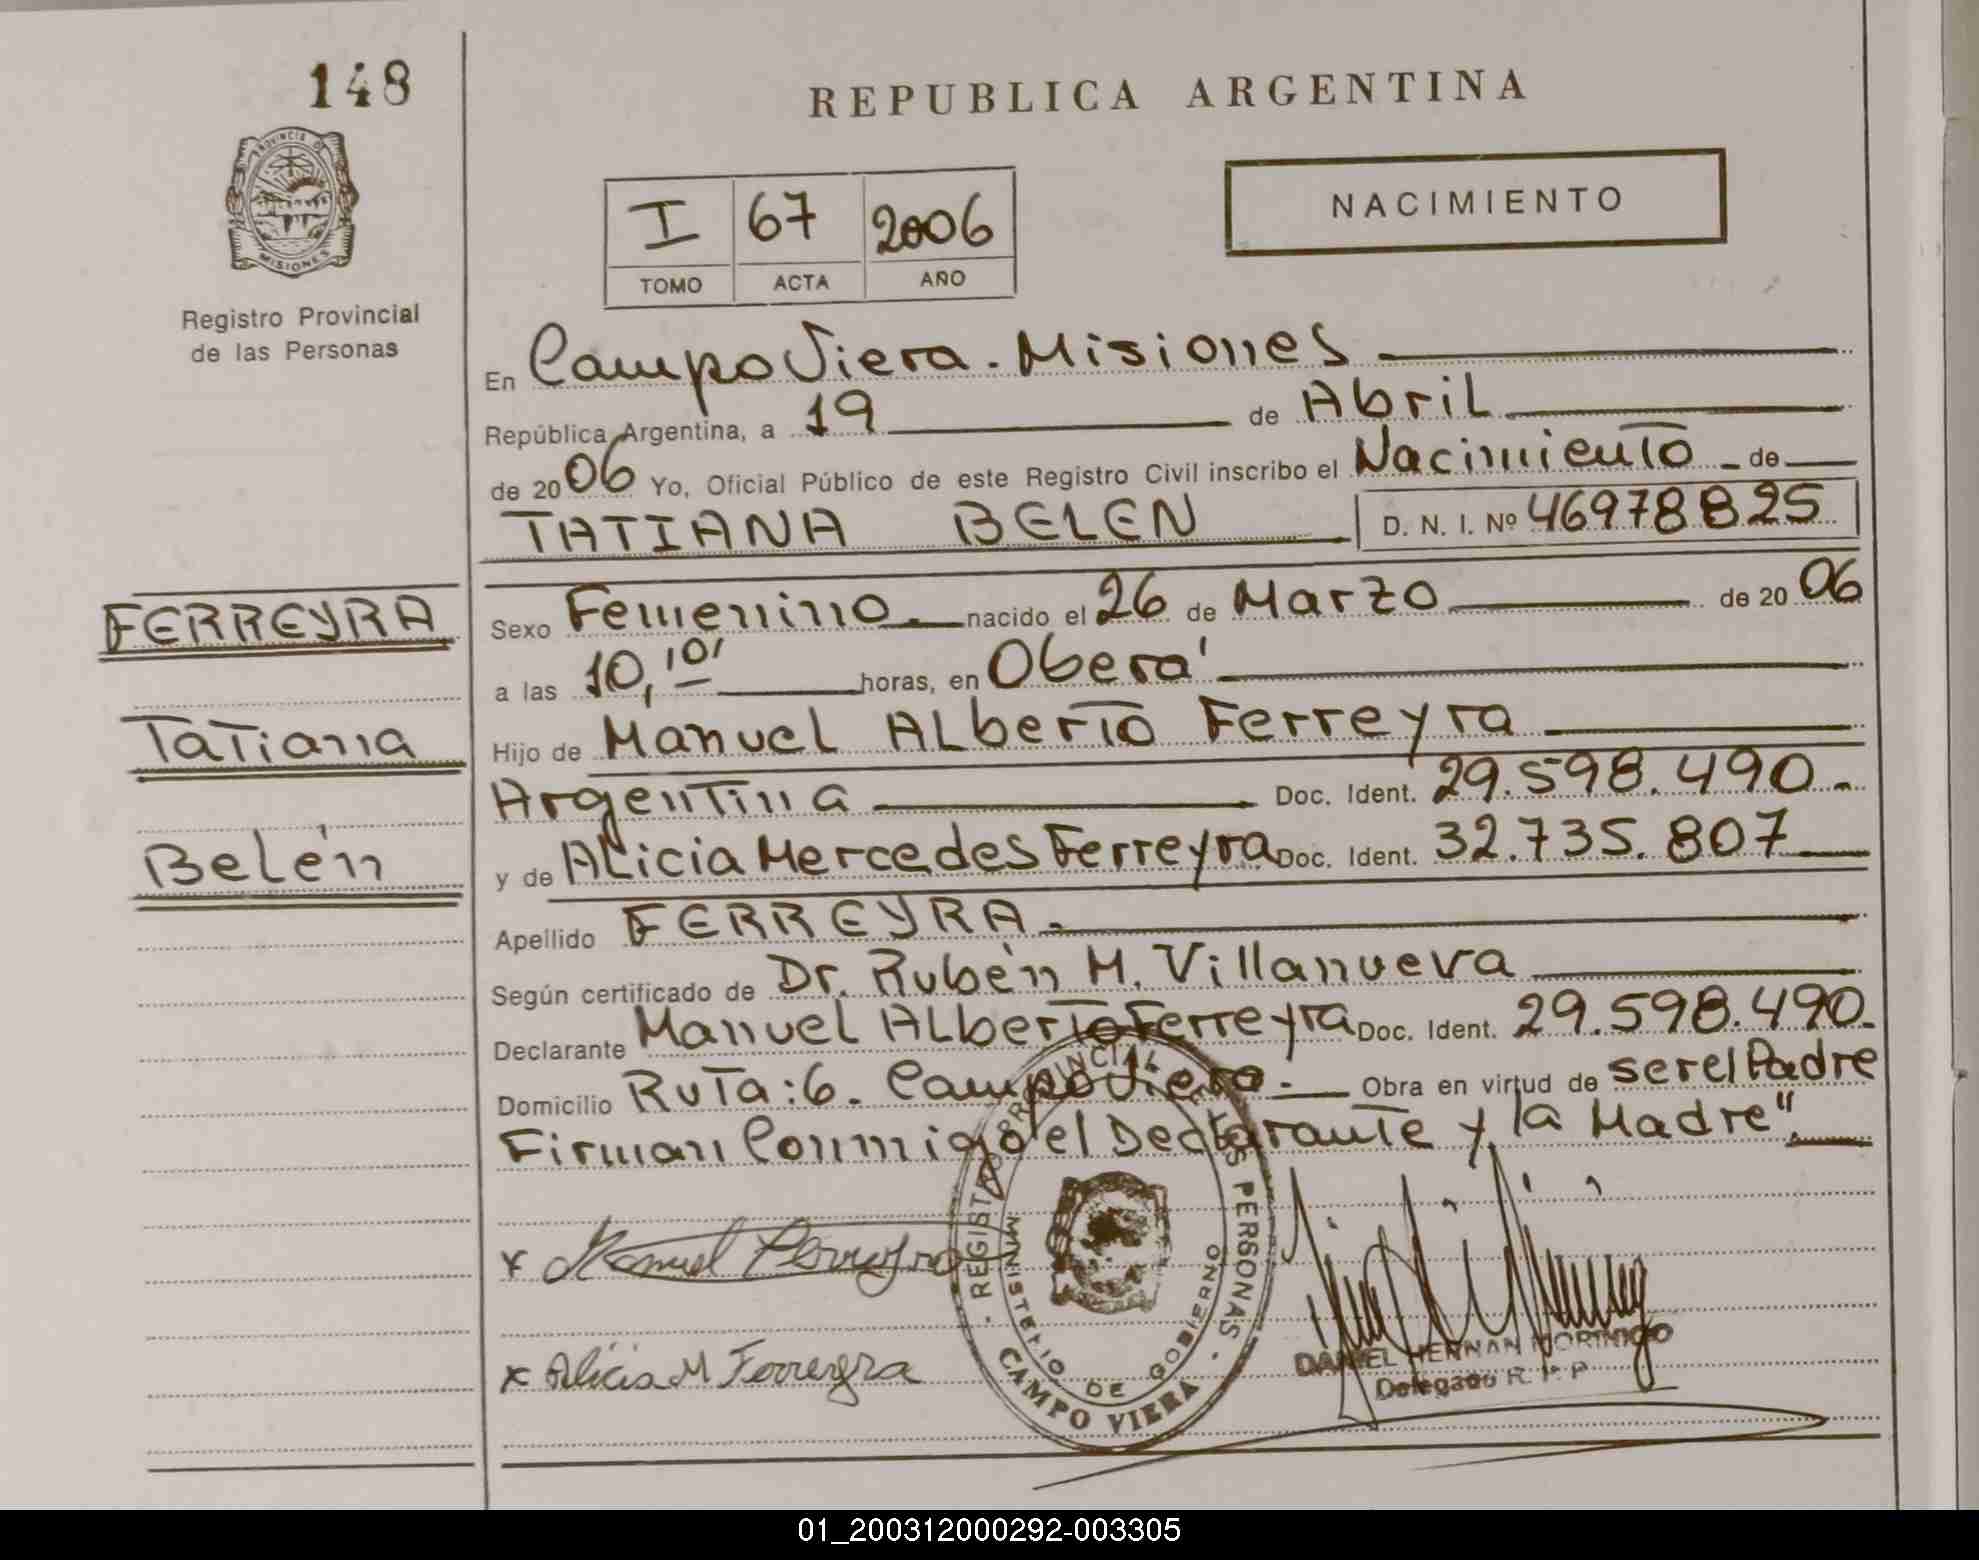 148
REPUBLICA ARGENTINA
PROVINCIA DE
MISIONES
Registro Provincial
de las Personas
I 67 2006
TOMO ACTA AÑO
NACIMIENTO
En Campo Viera. Misiones
República Argentina, a 19 de Abril
de 2006 Yo, Oficial Público de este Registro Civil inscribo el Nacimiento de
TATIANA BELEN D. N. I. Nº 46978825
FERREYRA
Tatiana
Belén
Sexo Femenino. nacido el 26 de Marzo de 2006
a las 10,10' horas, en Oberá
Hijo de Manuel Alberto Ferreyra
Argentina Doc. Ident. 29.598.490.-
y de Alicia Mercedes Ferreyra Doc. Ident. 32.735.807
Apellido FERREYRA.
Según certificado de Dr. Rubén M. Villanueva
Declarante Manuel Alberto Ferreyra Doc. Ident. 29.598.490.
Domicilio Ruta:6. Campo Viera.- Obra en virtud de ser el Padre
Firman Conmigo el Declarante y la Madre".
x Manuel Ferreyra
x Alicia M Ferreyra
REGISTRO PROVINCIAL DE LAS PERSONAS
MINISTERIO DE GOBIERNO
CAMPO VIERA
DANIEL HERNAN MORINIGO
Delegado R. P. P
01_200312000292-003305